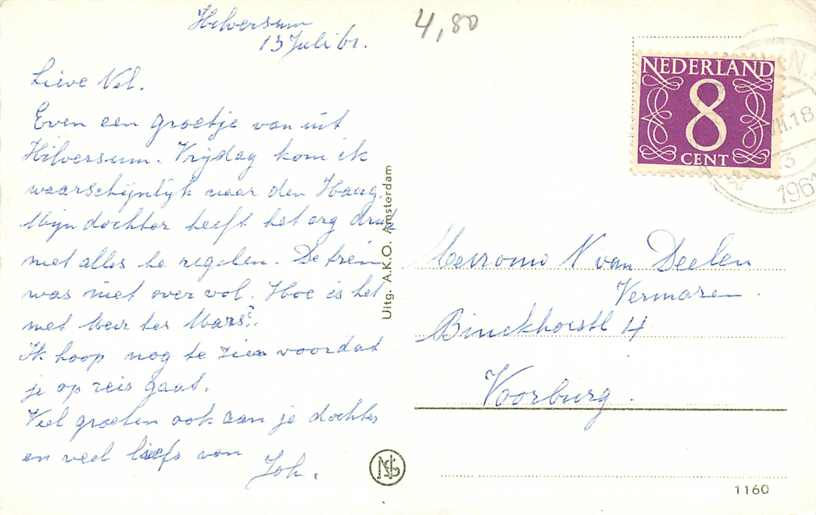 Hilversum
13 Juli 61.
4,80
Lieve Nel.
Even een groetje van uit
Hilversum. Vrijdag kom ik
waarschijnlijk naar den Haag.
Mijn dochter heeft het erg druk
met alles te regelen. De trein
was niet over vol. Hoe is het
met
Ik hoop nog te zien voordat
je op reis gaat.
Veel groeten ook aan je dochter
en veel liefs van Joh.
Uitg. A.K.O. Amsterdam
NEDERLAND
8
CENT
VII.18
3
1961
Mevrouw N van Deelen
Vermaren
Binckhorstl 4
Voorburg.
1160